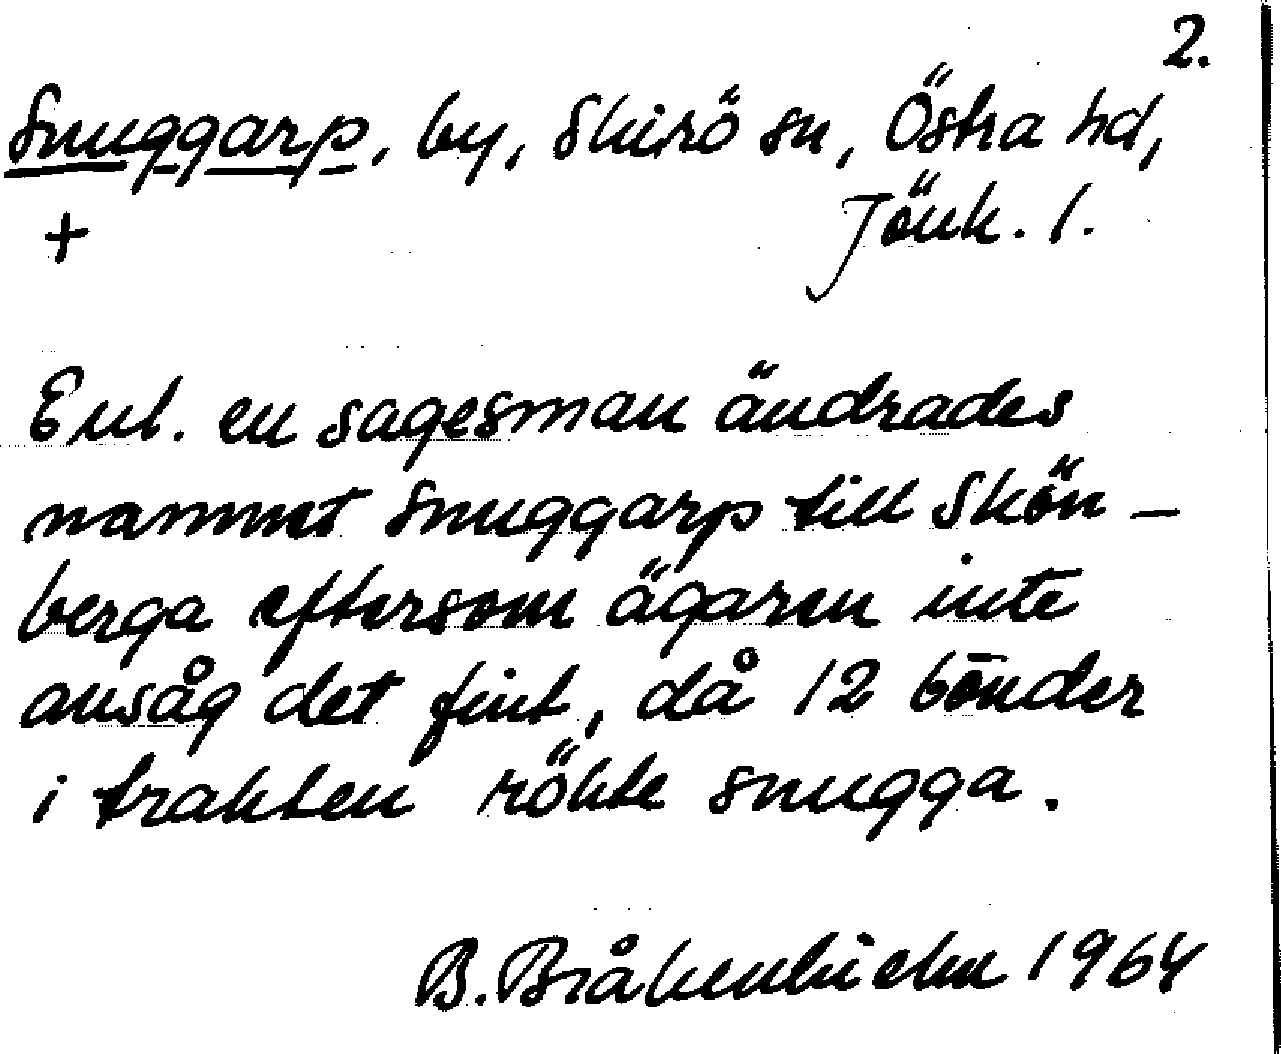 2.
Snuggarp, by, Skirö sn, Östra hd,
+ Jönk. l.
Enl. en sagesman ändrades
namnet Snuggarp till Skön-
berga eftersom ägaren inte
ansåg det fint, då 12 bönder
i trakten rökte snugga.
B. 1964